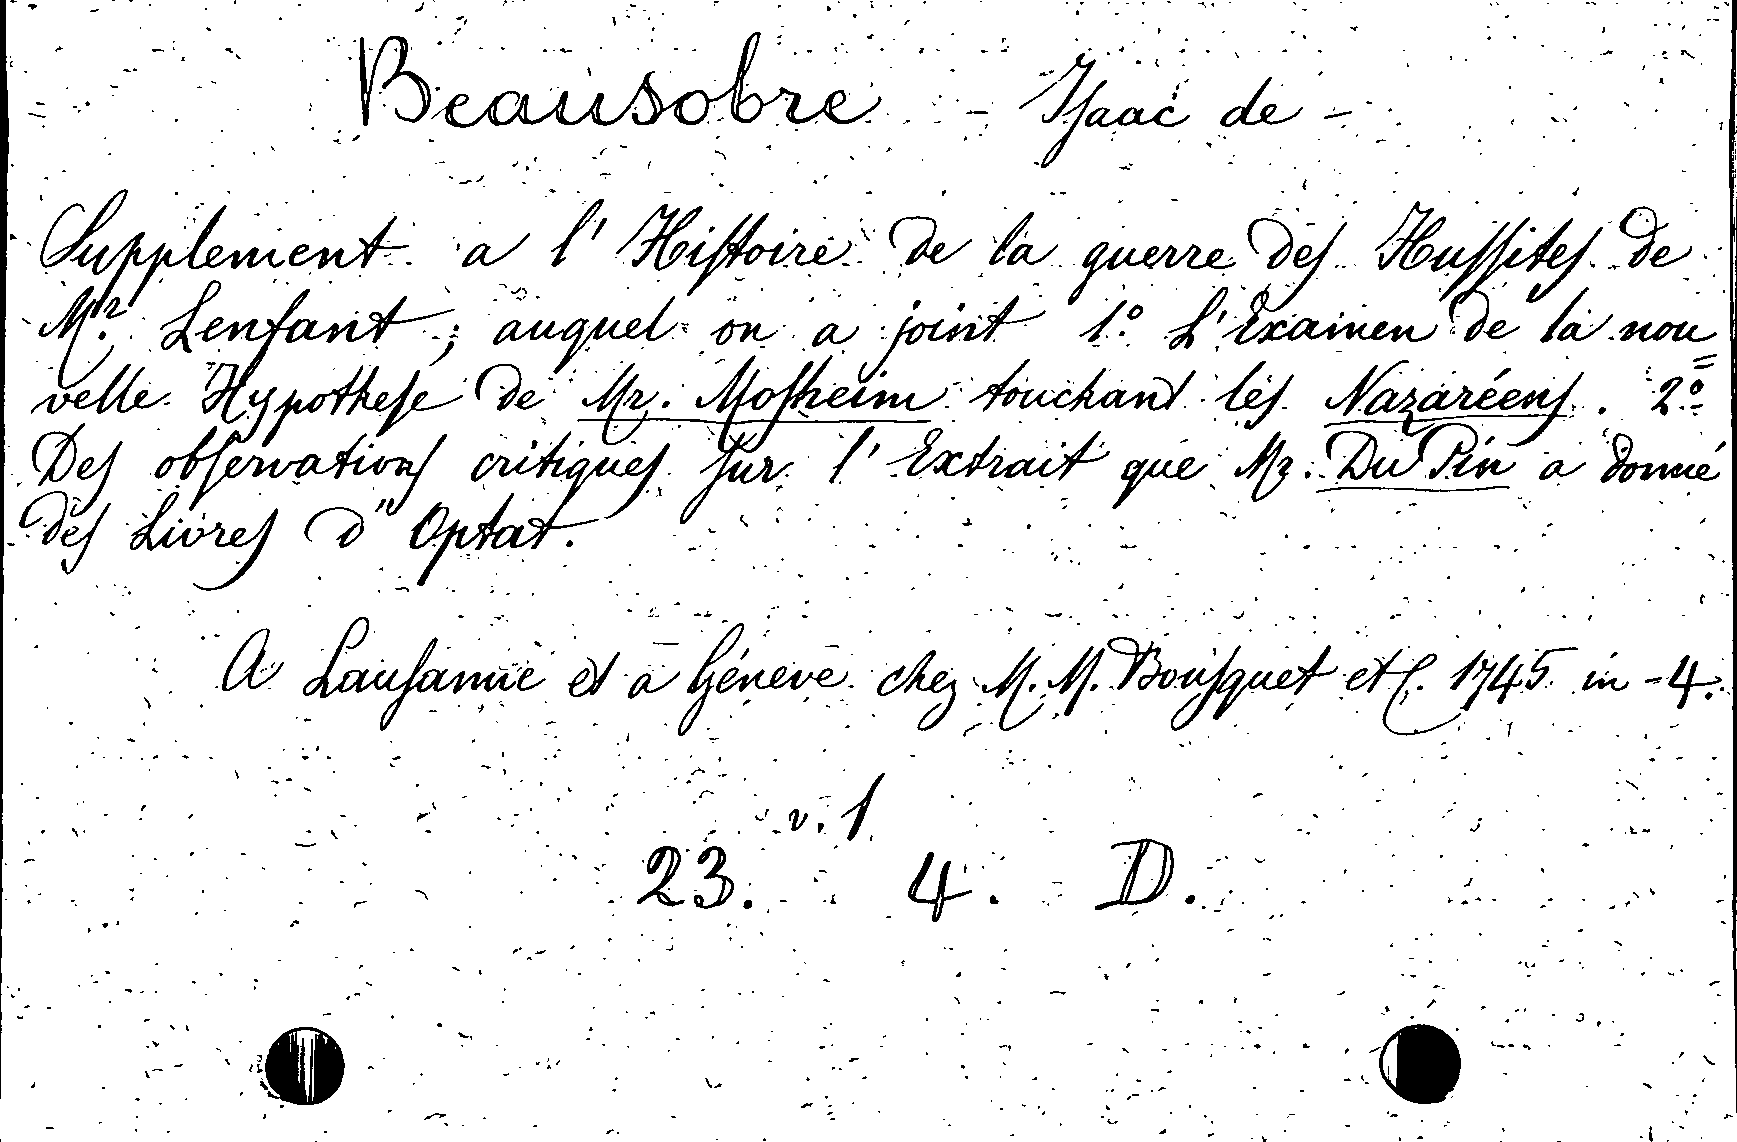 Beausobre - Isaac de -
Supplement a l'Histoire de la guerre des Hussites de
Mr. Lenfant ; auquel on a joint 1.º L'Examen de la nou=
velle Hypothese de Mr. Mosheim touchant les Nazaréens. 2.º
Des observations critiques sur l'Extrait que Mr. Du Pin a donné
des Livres d'Optat.
A Lausanne et a Géneve chez M. M. Bousquet et C. 1745 in-4.
v. 1
23. 4. D.